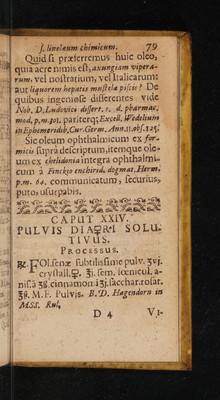 J. linelæum chimicum. 79
Quid si præferremus huic oleo,
quia acre nimis est, axungiam vipera-
rum, vel nostratium, vel Italicarum;
aut liquorem hepatis mustela piscis? De
quibus ingeniose differentes vide
Nob. D. Ludovici dissert. 1. d. pharmac.
mod. p.m. 301. pariterq; Excell. Wedelium
in Ephemeridib. Cur. Germ. Ann. 11. obs. 125.
Sic oleum ophthalmicum ex for-
micis supra descriptum, itemque ole-
um ex chelidonia integra ophthalmi-
cum à Finckio enchirid. dogmat. Herm.
p.m. 60. communicatum, securius,
puto, usurpabis.
CAPUT XXIV.
PULVIS DIA SOLU-
TIVUS.
PROCESSUS.
FOl. senæ subtilissime pulv. ʒvj.
crystall. ʒj. sem. fœnicul. a-
nis. ā ʒß. cinnamomi ʒj. sacchar. rosar.
ʒß. M. F. Pulvis. B. D. Hagendorn in
M.SS. Rul.
D 4 VI-